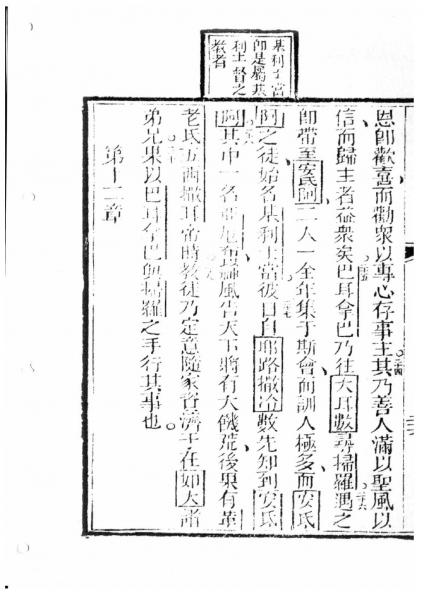 基利士當
即是屬基
利士督之
教者
恩即歡喜而勸衆以專心存事主二十四其乃善人滿以聖風以
信而歸主者益衆矣二十五巴耳拿巴乃往大耳數尋掃羅二十六遇之
即帶至安氏阿二人一全年集于斯會而訓人極多而安氏
阿之徒始名基利士當二十七彼日自耶路撒冷數先知到安氏
阿二十八其中一名風告天下將有大饑荒後果有革
老氏五西撒耳當時教徒乃定意隨家資濟于在如大諸
弟兄三十果以巴耳拿巴與掃羅之手行其事也
第十二章